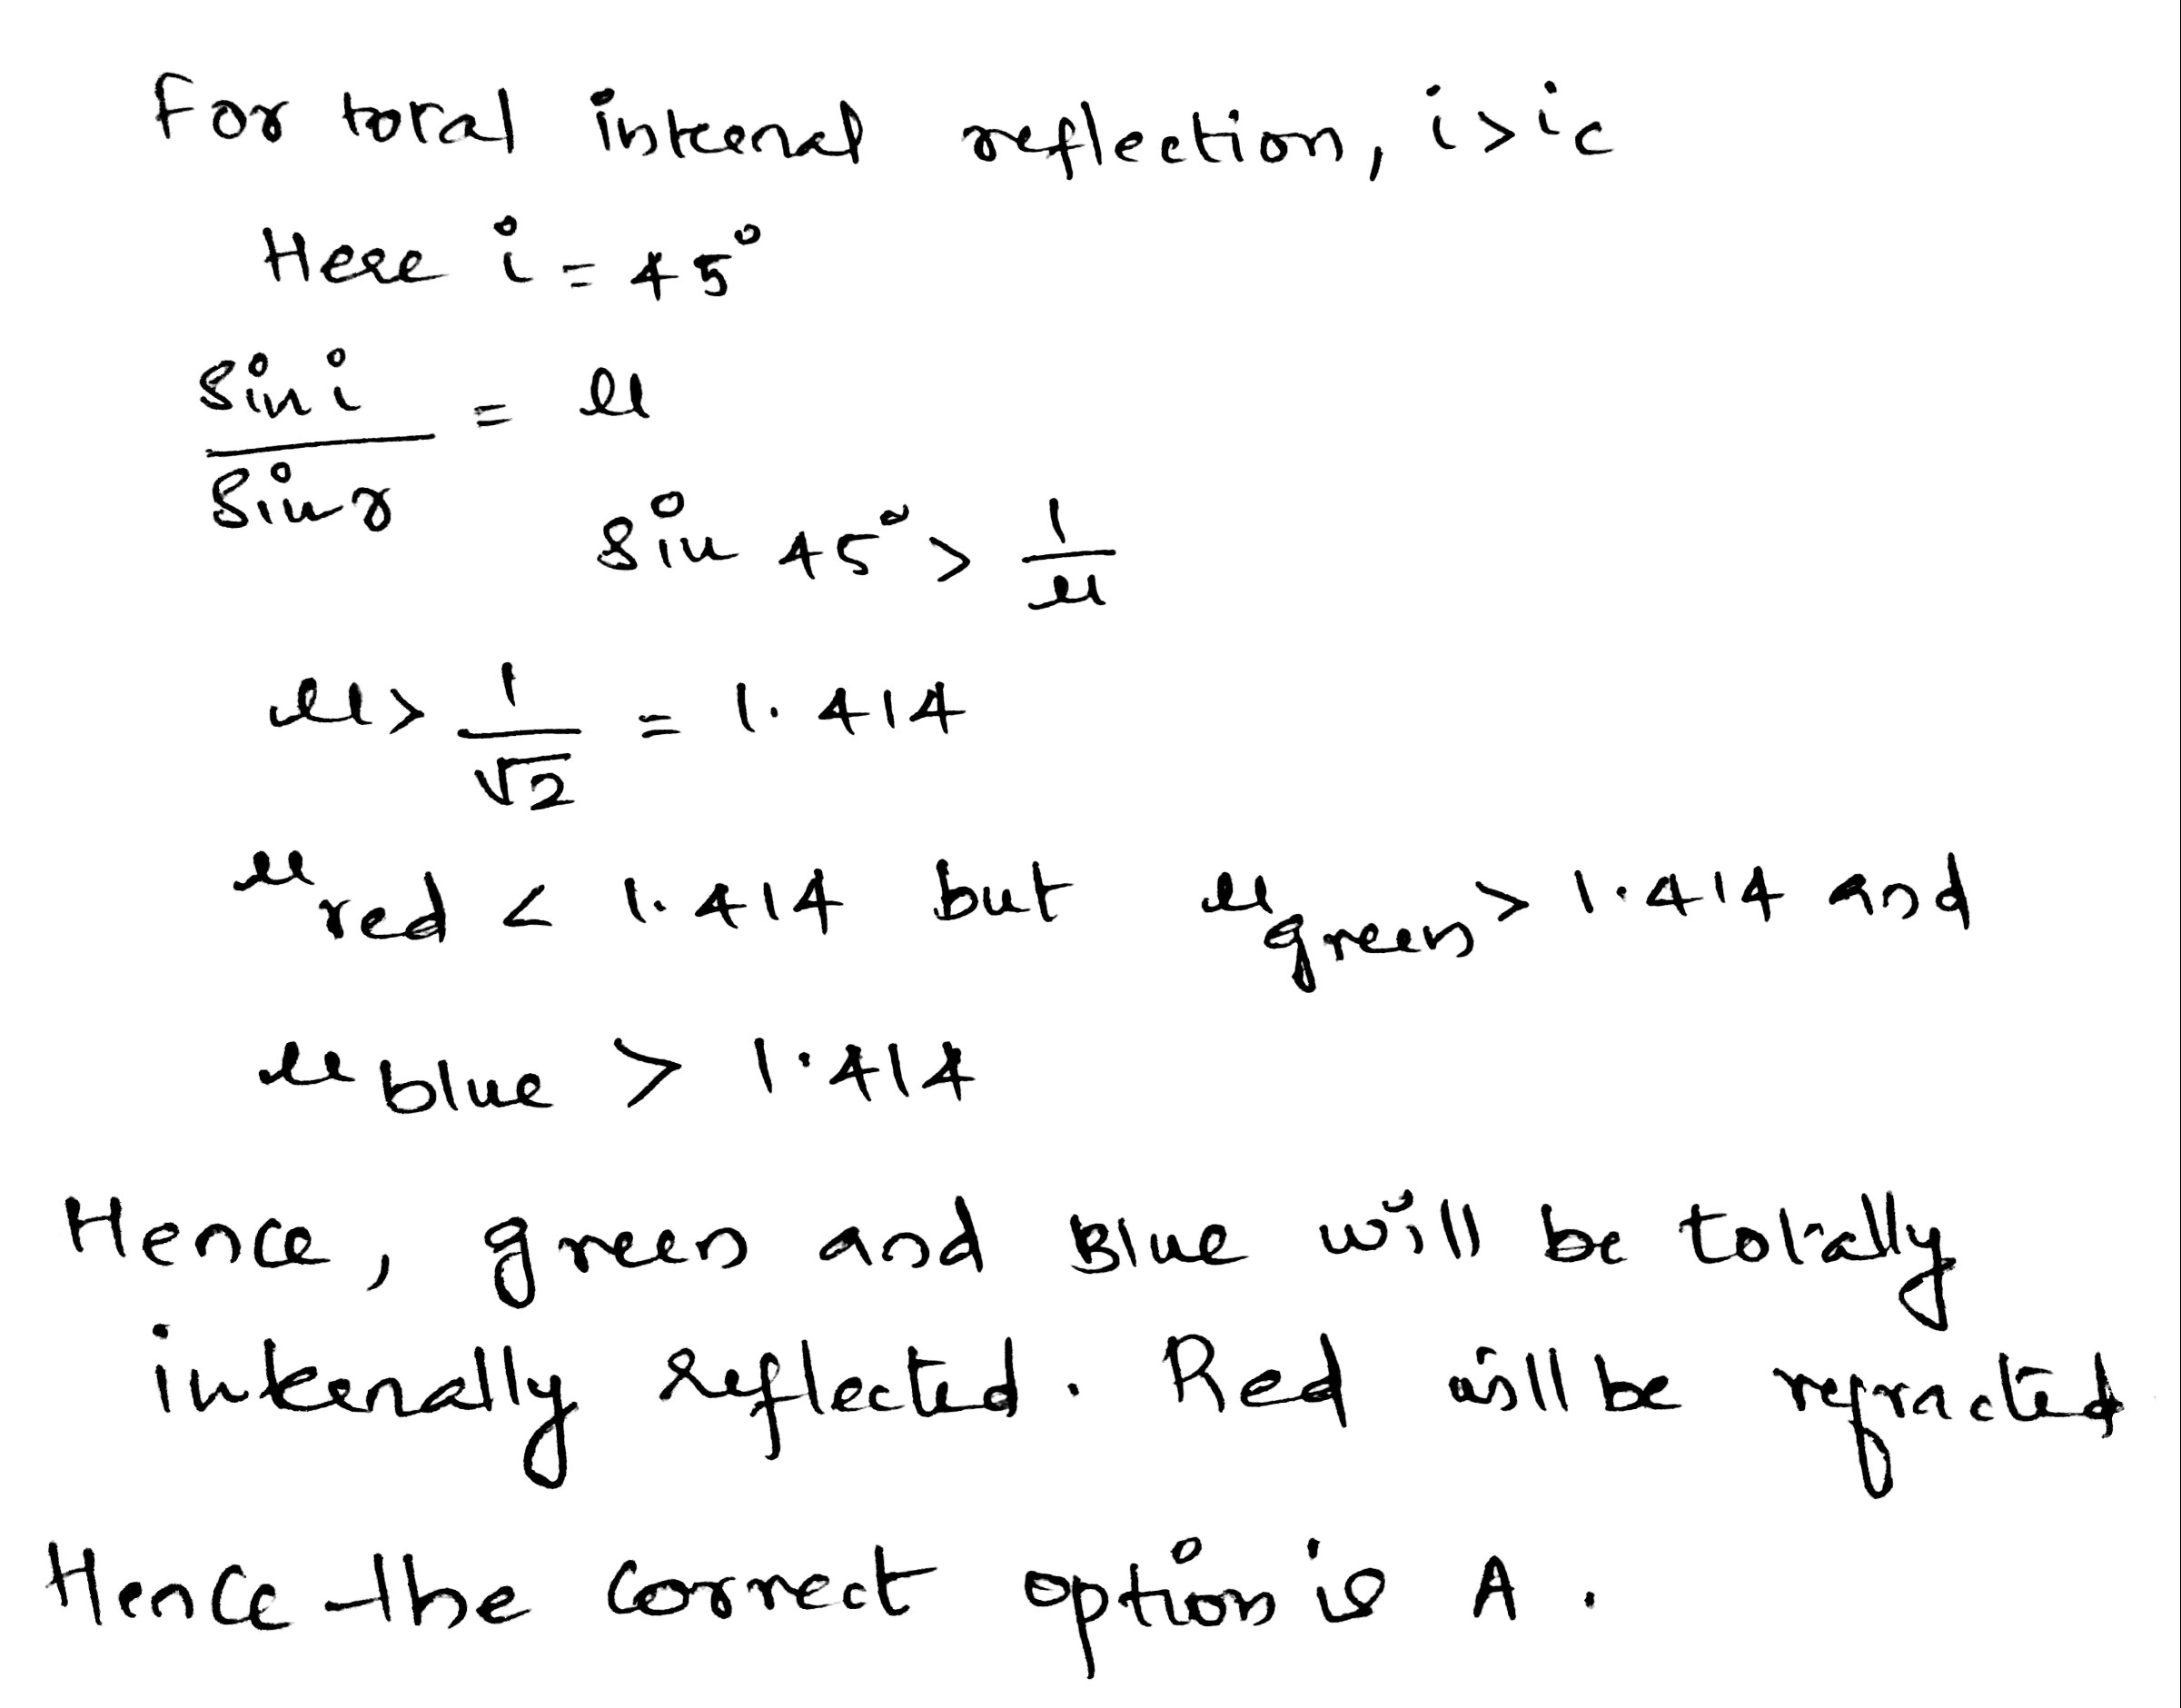 For total internal reflection, i > ic
Here i = 45°
sin i / sin r = μ
sin 45° > 1/μ
μ > 1/√2 = 1.414
μ red < 1.414 but μ green > 1.414 and
μ blue > 1.414
Hence, green and Blue will be totally
internally reflected. Red will be refracted
Hence the correct option is A.